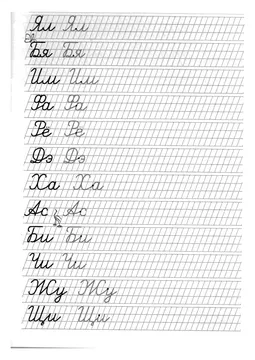 Ял Ял
Бя Бя
Им Им
Фа Фа
Ре Ре
Дэ Дэ
Ха Ха
Ас Ас
Би Би
Чи Чи
Жу Жу
Щи Щи